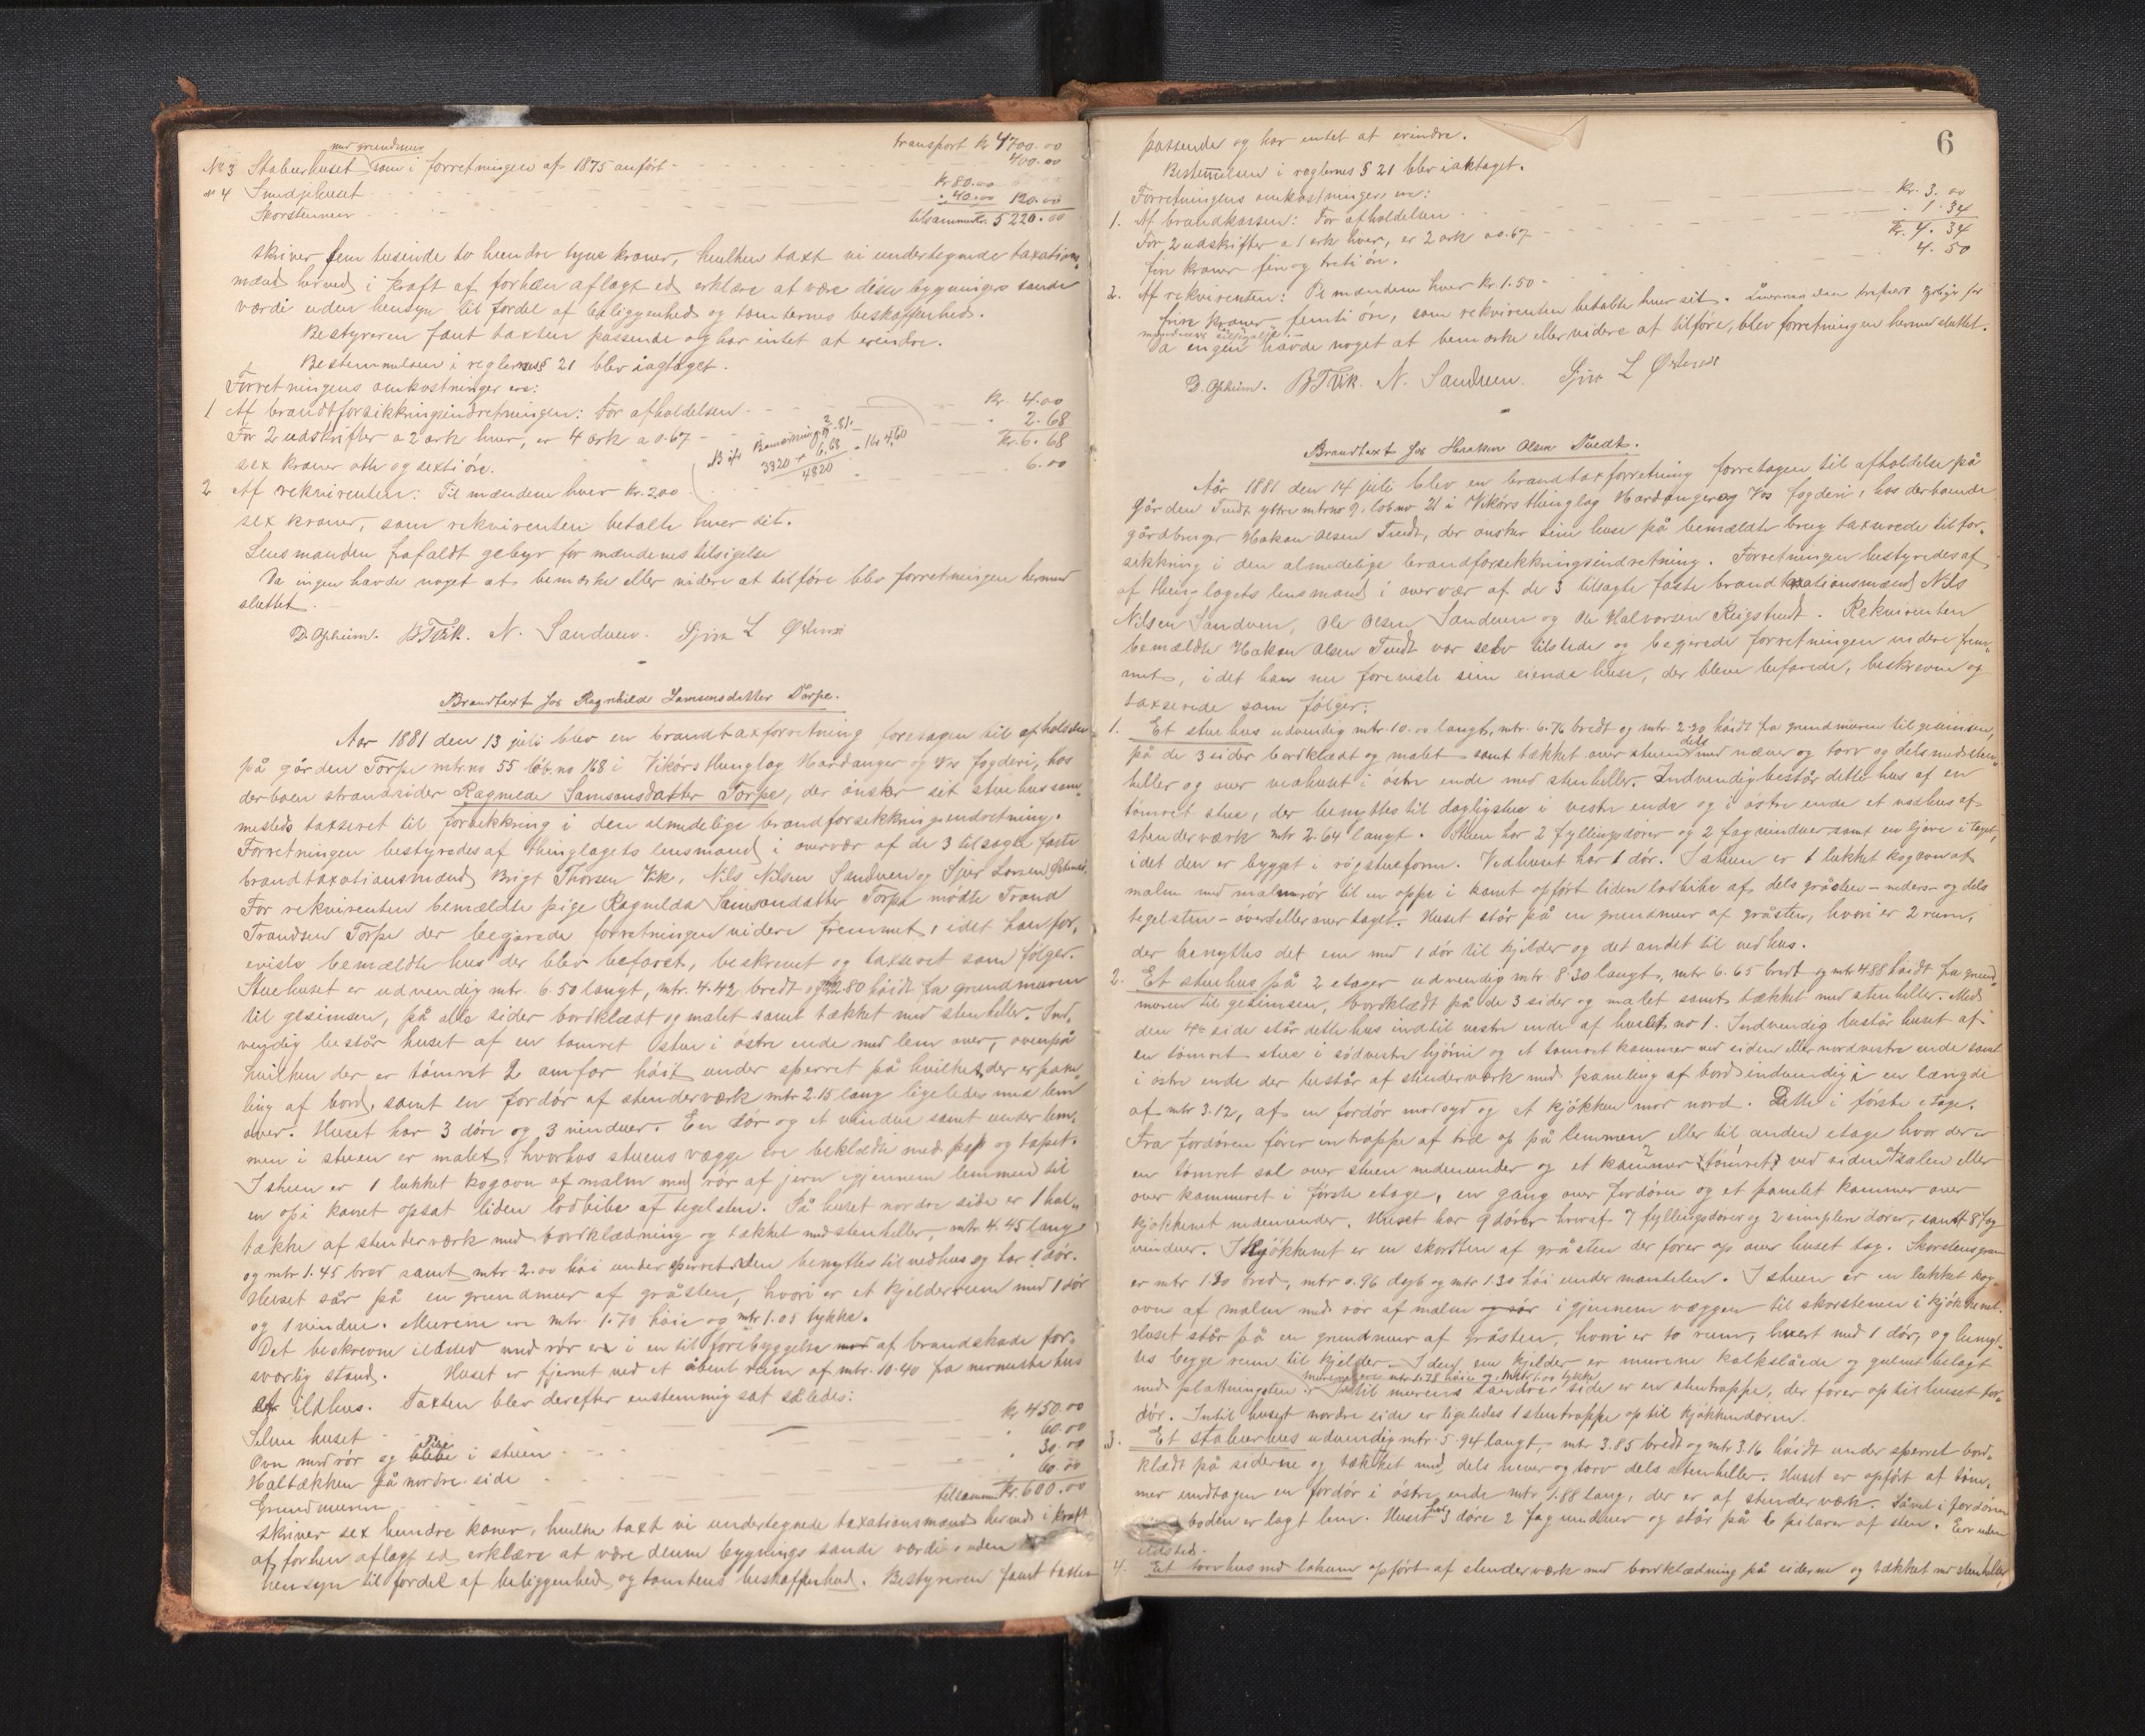 transport Kr 4700.00
med grundmur
No 3 Staburhuset som i forretningen af 1875 anført - 400.00
" 4 Smedjehuset Kr 80.00
Skorstenen " 40.00 120.00
tilsammen Kr. 5220.00
skriver fem tusinde to hundre tyve kroner, hvilken taxt vi undertegnede taxations-
mænd herved i kraft af forhen aflagt ed erklære at være disse bygningers sande
værdi uden hensyn til fordel af beliggenhed og tomternes beskaffenhed.
Bestyreren fant taxten passende og har intet at erindre.
Bestemmelsen i reglernes § 21 blev iagtaget.
Forretningens omkostninger ere:
1 Af brandtforsikkringsindretningen: For afholdelsen Kr. 4.00
For 2 udskrifter a 2 ark hver, er 4 ark a 0.67 - " 2.68
sex kroner otte og sexti öre. Kr. 6.68
2 Af rekvirenten: Til mændene hver Kr. 2.00 6.00
sex kroner, som rekvirenten betalte hver sit.
Lensmanden frafaldt gebyr for mændenes tilsigelse
Da ingen havde noget at bemærke eller videre at tilføre blev forretningen hermed
sluttet.
D. Opheim. BTVik. N. Sandven. Sjur L Østensø
Brandtaxt hos Ragnhilde Samsonsdatter Torpe.
Aar 1881 den 13 juli blev en brandtaxforretning foretagen til afholdelse
på gården Torpe mtr.no 55 löb.no 168 i Vikörs thinglag Hardanger og Vos fogderi, hos
derboen strandsider Ragnilda Samsonsdatter Torpe, der önsker sit stuehus sam-
mesteds taxseret til forsikkring i den almedelige brandforsekkringsindretning.
Forretningen bestyredes af thinglagets lensmand i overvær af de 3 tilsagte faste
brandtaxationsmænd Brigt Thorsen Vik, Nils Nilsen Sandven og Sjur Larsen Østensø.
For rekvirenten bemældte pige Ragnilda Samsondatter Torpe mødte Trond
Trondsen Torpe der begjærede forretningen videre fremmet, idet han for,
eviste bemældte hus der blev befaret, beskrevet og taxseret som følger.
Stuehuset er udvendig mtr. 6.50 langt, mtr. 4.42 bredt og mtr 2.80 höidt fra grundmuren
til gesimsen, på alle sider bordklædt og malet samt tækket med stenheller. Ind,
vendig består huset af en tömret stue i östre ende med lem over, ovenpå
hvilken der er tömret 2 omfar höit under sperret på hvilket der er pane,
ling af bord, samt en fordör af stenderværk mtr 2.15 lang ligeledes med lem
over. Huset har 3 döre og 3 vinduer. En dör og et vindue samt under lem,
men i stuen er malet, hvorhos stuens vægge ere beklædte med pap og tapet.
I stuen er 1 lukket kogovn af malm med rör af jern igjennem lemmen til
en op i kanet opsat liden lodbibe af tegelsten. På huset nordre side er 1 hal-
tække af stenderværk med bordklædning og tækket med stenheller, mtr 4.45 lang
og mtr 1.45 bred samt mtr 2.00 höi under sperret. Den benyttes til vedhus og har 1 dör.
Huset står på en grundmur af gråsten, hvori er et kjelderrum med 1 dör
og 1 vindue. Murene ere mtr. 1.70 höie og mtr 1.05 tykke.
Det beskrevne ildsted med rör er i en til forebyggelse af brandskade for-
svarlig stand. Huset er fjernet ved et åbent rum af mtr. 10.40 fra nærmeste hus
et ildhus. Taxten blev derefter enstemmig sat således:
Selve huset Kr 450.00
Ovn med rör og Pibe i stuen " 60.00
Haltækken på nordre side " 30.00
Grundmuren " 60.00
tilsammen Kr. 600.00
skriver sex hundre kroner, hvilken taxt vi undertegnede taxationsmænd herved i kraft
af forhen aflagt ed erklære at være denne bygnings sande værdi uden
hensyn til fordel af beliggenhed og tomtens beskaffenhed. Bestyreren fant taxten
6
passende og har intet at erindre.
Bestemelsen i reglernes § 21 blev iaktaget.
Forretningens omkostninger, ere:
1. Af brandkassen: For afholdelsen Kr. 3.00
For 2 udskrifter a 1 ark hver, er 2 ark a 0.67 - " 1.34
fire kroner fire og treti öre. Kr. 4.34
2. Af rekvirenten: Til mændene hver Kr. 1.50 - 4.50
fire kroner femti öre, som rekvirenten betalte hver sit. Lensmanden frafaldt gebyr for
mændenes tilsigelse.
Da engen havde noget at bemærke eller videre at tilföre, blev forretningen hermed sluttet.
D. Opheim. BTVik. N. Sandven. Sjur L Østensø
Brandtaxt hos Haaken Olsen Tvedt.
Aar 1881 den 14 juli blev en brandtaxforretning foretagen til afholdelse på
Gården Tvedt yttre mtrno 9, löb no 21 i Vikörs thinglag Hardanger og Vos fogderi, hos derboende
gårdbruger Hakon Olsen Tvedt, der önsker sine huse på bemældte brug taxserede til for,
sikkring i den almedelige brandforsekkringsindretning. Forretningen bestyredes af
af thinglagets lensmand i overvær af de 3 tilsagte faste brandtaxationsmænd Nils
Nilsen Sandven, Ole Olsen Sandven og Ole Halvorsen Reigstvedt. Rekvirenten
bemældte Hakon Olsen Tvedt var selv tilstede og begjærede forretningen videre frem-
met, idet han nu foreviste sine eiende huse, der bleve befarede, beskrevne og
taxserede som følger:
1. Et stuehus udvendig mtr. 10.00 langt, mtr. 6.76 bredt og mtr 2.20 höidt fra grundmuren til gesimsen,
på de 3 sider bordklædt og malet samt tækket over stuen dels med næver og torv og dels med sten,
heller og over vedhuset i östre ende med stenheller. Indvendig består dette hus af en
tömret stue, der benyttes til dagligstue i vestre ende og i östre ende et vedhus af
stenderværk mtr 2.64 langt. Stuen har 2 fyllingsdörer og 2 fag vinduer samt en ljore i taget,
idet den er bygget i rögstueform. Vedhuset har 1 dör. I stuen er 1 lukket kogovn af
malm med malmrör til en oppe i kanet opført liden lodbibe af dels gråsten - nederst - og dels
tegelsten - överst eller over taget. Huset står på en grundmur af gråsten, hvori er 2 rum,
der benyttes det ene med 1 dör til kjelder og det andet til vedhus.
2. Et stuehus på 2 etager udvendig mtr. 8.30 langt, mtr 6.65 bredt og mtr 4.88 höidt fra grund-
muren til gesimsen, bordklædt på de 3 sider og malet samt tækket med stenheller. Med
den 4de side står dette hus indtil vestre ende af huset no 1. Indvendig består huset af
en tömret stue i sydvestre hjörne og et tömret kammer ved siden eller nordvestre ende samt
i östre ende der består af stenderværk med paneling af bord indvendig i en længde
af mtr 3.12, af en fordör mod syd og et kjökken mod nord. Dette i förste etage.
Fra fordören förer en trappe af træ op på lemmen eller til anden etage hvor der er
en tömret sal over stuen nedenunder og et kammer tömret ved siden af salen eller
over kammeret i förste etage, en gang over fordören og et panelet kammer over
kjökkenet nedenunder. Huset har 9 dörer hvoraf 7 fyllingsdörer og 2 simplere dörer, samt 8 fag
vinduer. I Kjökkenet er en skorsten af gråsten der förer op over huset tag. Skorstensgruen
er mtr 1.30 bred, mtr 0.96 dyb og mtr 1.30 höi under mantelen. I stuen er en lukket kog
ovn af malm med rör af malm og rör igjennem væggen til skorstenen i kjökkenet.
Huset står på en grundmur af gråsten, hvori er to rum, hvert med 1 dör, og benyt-
tes begge rum til kjelder. I den ene kjelder er murene kalkslåede og gulvet belagt
murene ere mtr 1.78 höie og mtr 1.00 tykke
med plattningsten. Indtil murens söndre side er en stentrappe, der förer op til huset for-
dör. Intil huset nordre side er ligeledes 1 stentrappe op til kjökkendören.
3. Et stabuerhus udvendig mtr. 5.94 langt, mtr 3.85 bredt og mtr 3.16 höidt under sperret bord-
klædt på siderne og tækket med dels never og torv dels stenheller. Huset er opfört af töm-
mer undtagen en fordör i östre ende mtr 1.88 lang, der er af stenderværk. Såvel i fordören
boden er lagt lem. Huset har 3 döre 2 fag vinduer og står på 6 pilarer af sten. Er uden
ildsted.
4. Et torvhus med lokum opført af stenderværk med bordklædning på siderne og tækket med stenheller,